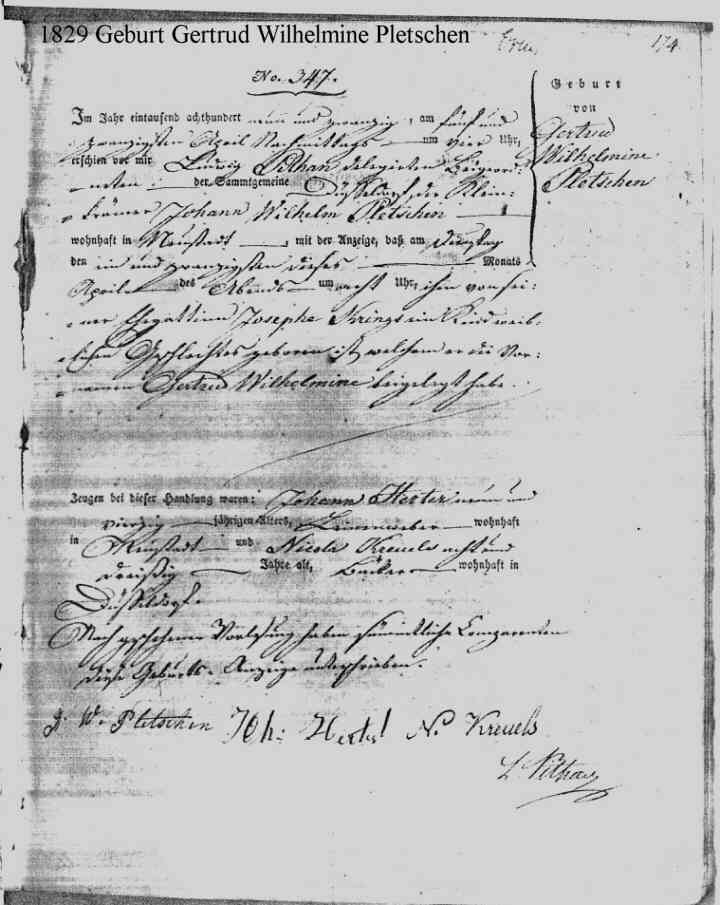 1829 Geburt Gertrud Wilhelmine Pletschen
174.
No. 347.
Geburt
von
Gertrud
Wilhelmine
Pletschen
Im Jahr eintausend achthundert neun und zwanzig, am fünf und
zwanzigsten April Nachmittags um vier Uhr,
erschien vor mir Ludwig Pithan delegirten Beigeord-
neten der Sammtgemeine Düsseldorf, der Klein-
krämer Johann Wilhelm Pletschen
wohnhaft in Neustadt, mit der Anzeige, daß am Dienstag
den ein und zwanzigsten dieses Monats
April des Abends um acht Uhr, ihm von sei-
ner Ehegattinn Josephe Krings ein Kind weib-
lichen Geschlechtes geboren ist, welchem er die Vor-
namen Gertrud Wilhelmine beigelegt habe.
Zeugen bei dieser Handlung waren: Johann Herter neun und
vierzig jährigen Alters, Leineweber wohnhaft
in Neustadt und Nicola Kreuels acht und
dreißig Jahre alt, Bäcker wohnhaft in
Düsseldorf.
Nach geschehener Vorlesung haben sämmtliche Comparenten
diese Geburts-Anzeige unterschrieben.
J. W. Pletschen Joh: N. Kreuels
L. Pithan